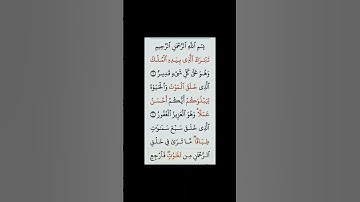 بِسْمِ ٱللَّهِ ٱلرَّحْمَٰنِ ٱلرَّحِيمِ
تَبَٰرَكَ ٱلَّذِى بِيَدِهِ ٱلْمُلْكُ
وَهُوَ عَلَىٰ كُلِّ شَىْءٍ قَدِيرٌ ۝١
ٱلَّذِى خَلَقَ ٱلْمَوْتَ وَٱلْحَيَوٰةَ
لِيَبْلُوَكُمْ أَيُّكُمْ أَحْسَنُ
عَمَلًا ۚ وَهُوَ ٱلْعَزِيزُ ٱلْغَفُورُ ۝٢
ٱلَّذِى خَلَقَ سَبْعَ سَمَٰوَٰتٍ
طِبَاقًا ۖ مَّا تَرَىٰ فِى خَلْقِ
ٱلرَّحْمَٰنِ مِن تَفَٰوُتٍ ۖ فَٱرْجِعِ